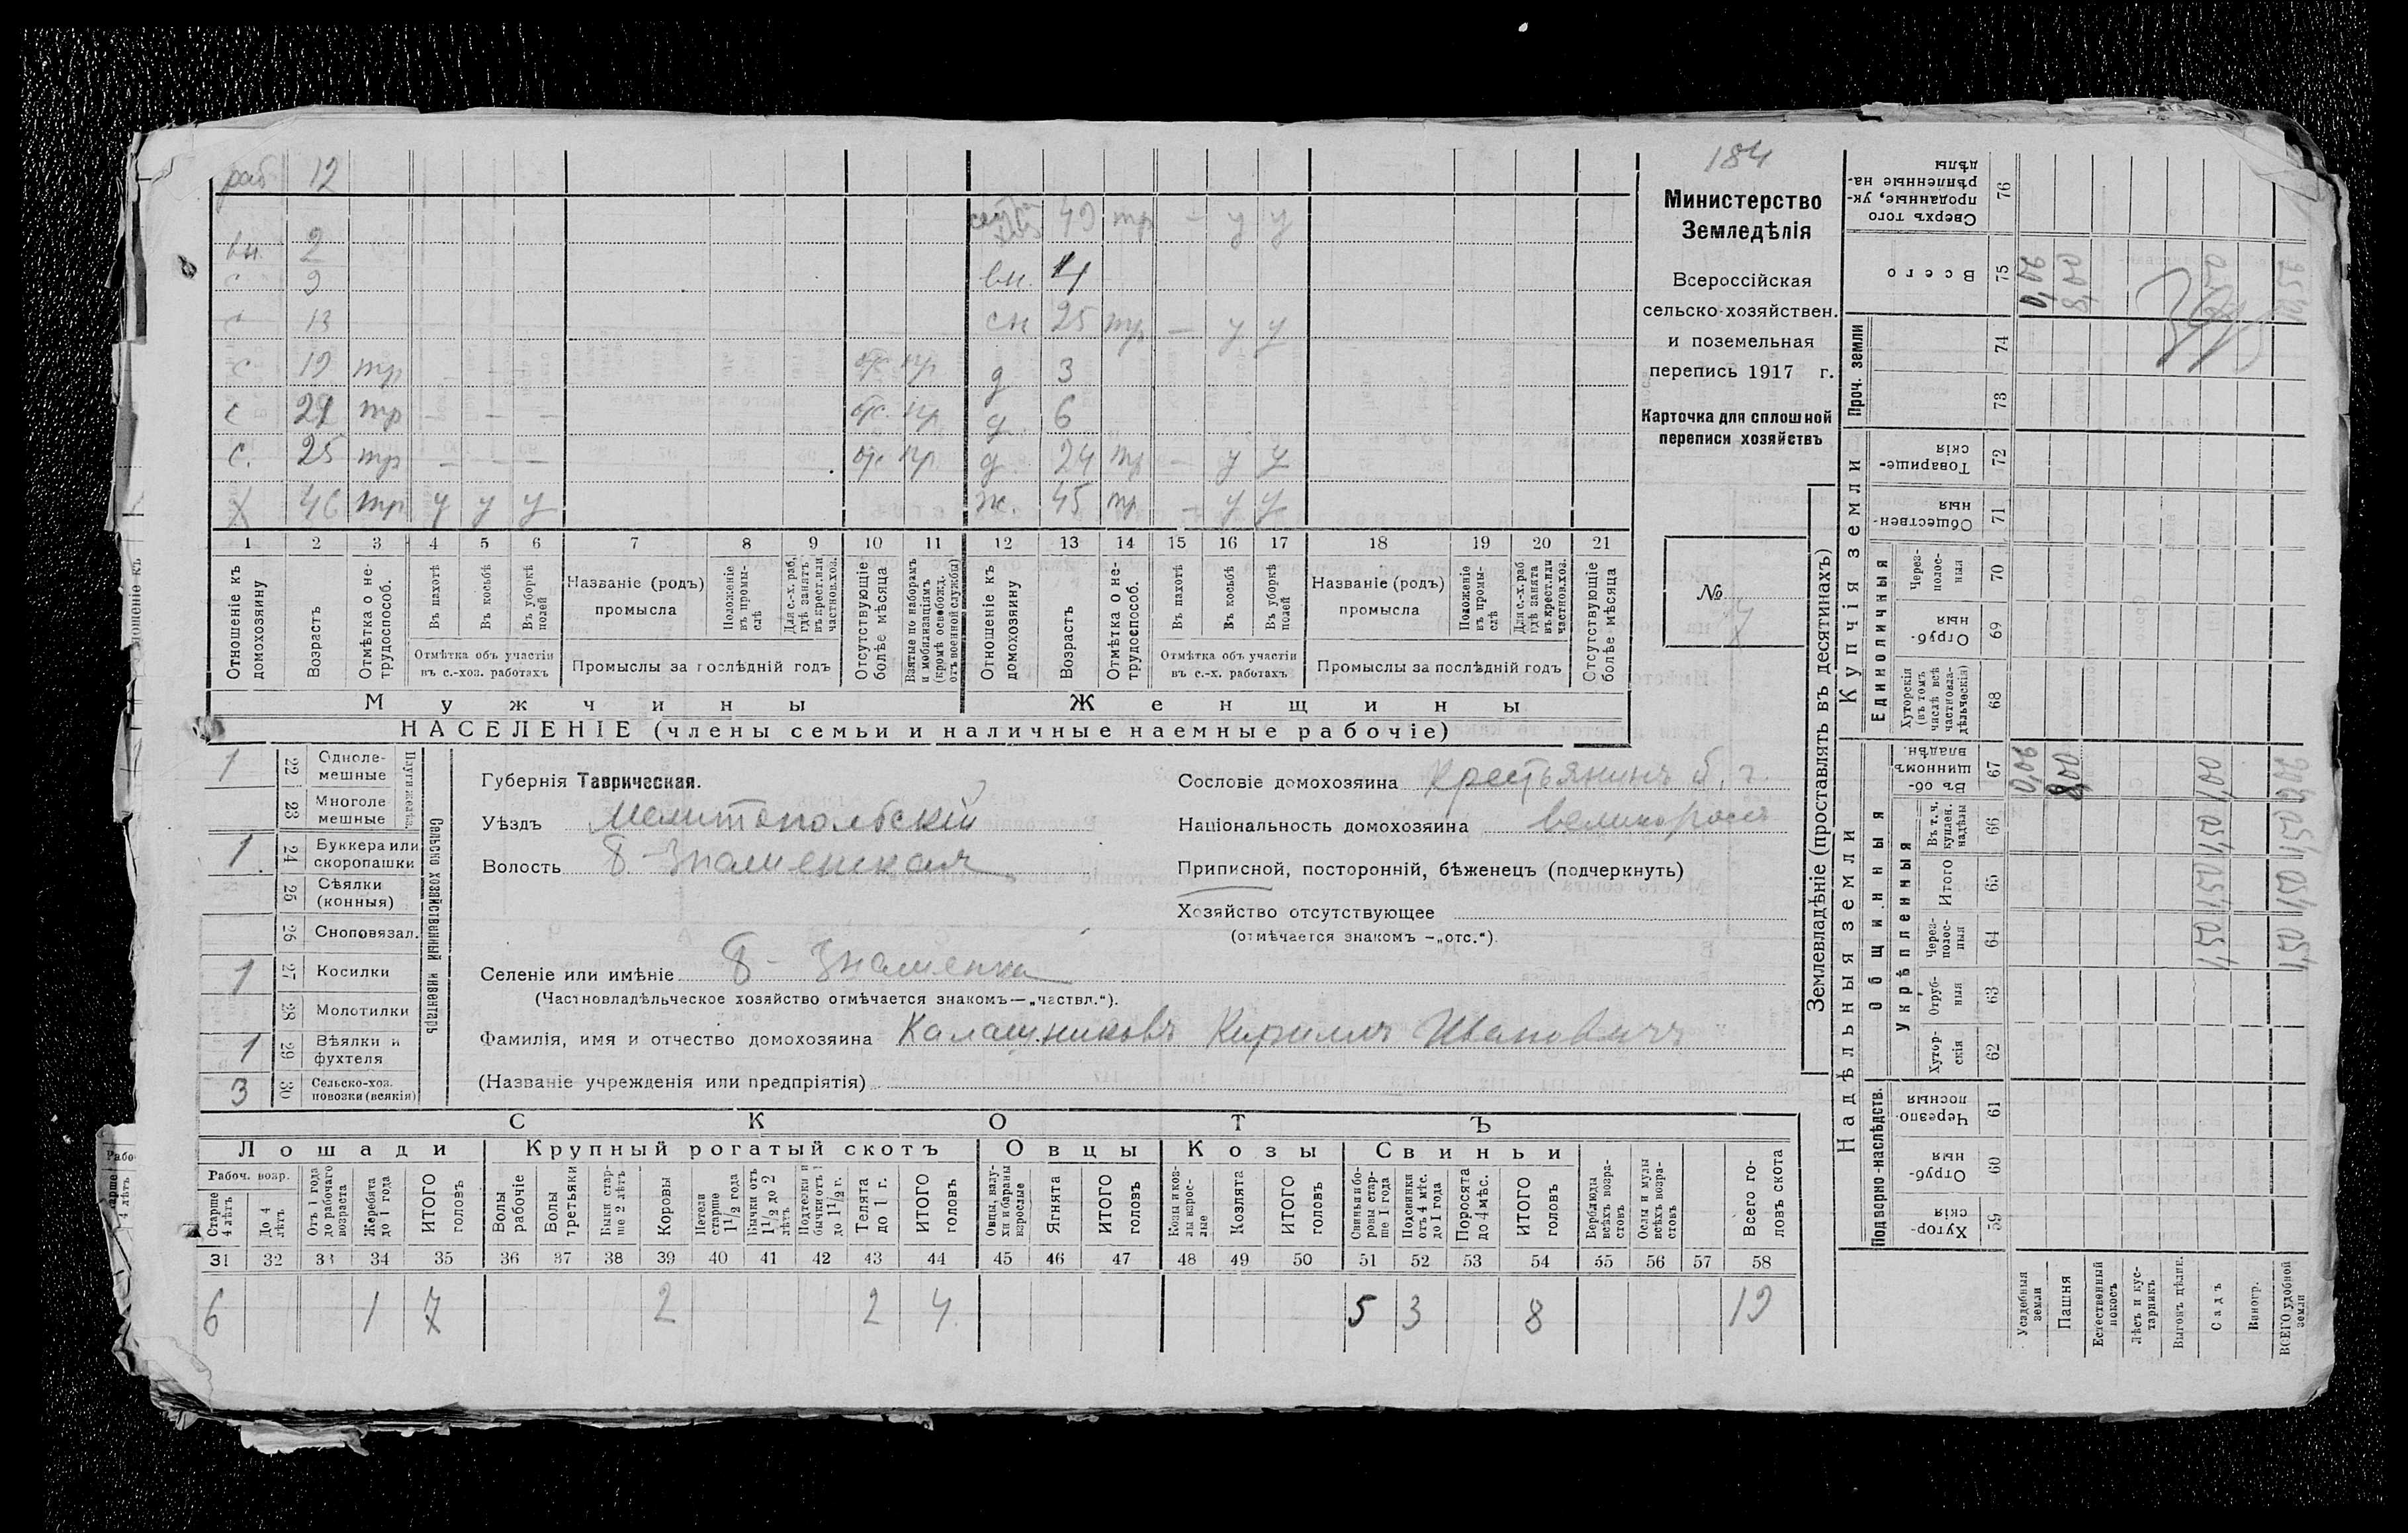 184
Министерство
Земледѣлія
Всероссійская
сельско-хозяйствен.
и поземельная
перепись 1917 г.
Карточка для сплошной
переписи хозяйствъ
№
раб 12
49 тр – у у
вн. 2
с 9 вн. 4
с 13 сн 25 тр – у у
с 19 тр – – – отс пр д 3
с 21 тр – – – отс. пр д. 6
с. 25 тр – – – отс пр. д 24 тр – у у
х 46 тр у у у ж. 45 тр – у у
1 2 3 4 5 6 7 8 9 10 11 12 13 14 15 16 17 18 19 20 21
Отношеніе къ домохозяину
Возрастъ
Отмѣтка о не-трудоспособ.
Въ пахотѣ
Въ косьбѣ
Въ уборкѣ полей
Отмѣтка объ участіи въ с.-хоз. работахъ
Названіе (родъ) промысла
Положеніе въ промы-слѣ
Для с.-х. раб. гдѣ занятъ въ крест. или частнов. хоз.
Промыслы за послѣдній годъ
Отсутствующіе болѣе мѣсяца
Взятые по наборамъ и мобилизаціямъ (кромѣ освобожд. отъ военной службы)
Отношеніе къ домохозяину
Возрастъ
Отмѣтка о не-трудоспособ.
Въ пахотѣ
Въ косьбѣ
Въ уборкѣ полей
Отмѣтка объ участіи въ с.-х. работахъ
Названіе (родъ) промысла
Положеніе въ промы-слѣ
Для с.-х. раб. гдѣ занята въ крест. или частнов. хоз.
Промыслы за послѣдній годъ
Отсутствующіе болѣе мѣсяца
Мужчины Женщины
НАСЕЛЕНІЕ (члены семьи и наличные наемные рабочіе)
Сельско хозяйственный инвентарь
Плуги желѣз.
1 22 Одноле-мешные
23 Многоле мешные
1 24 Буккера или скоропашки
25 Сѣялки (конныя)
26 Сноповязал.
1 27 Косилки
28 Молотилки
1 29 Вѣялки и фухтеля
3 30 Сельско-хоз. повозки (всякія)
Губернія Таврическая.
Уѣздъ Мелитопольскій
Волость Б-Знаменская
Селеніе или имѣніе Б- Знаменка
(Частновладѣльческое хозяйство отмѣчается знакомъ—„частвл.“).
Фамилія, имя и отчество домохозяина Калашниковъ Кириллъ Ивановичъ
(Названіе учрежденія или предпріятія)
Сословіе домохозяина Крестьянинъ б. г.
Національность домохозяина великороссъ
Приписной, посторонній, бѣженецъ (подчеркнуть)
Хозяйство отсутствующее
(отмѣчается знакомъ —„отс.“).
СКОТЪ
Лошади Крупный рогатый скотъ Овцы Козы Свиньи
Рабоч. возр.
Старше 4 лѣтъ
До 4 лѣтъ
Отъ 1 года до рабочаго возраста
Жеребята до 1 года
ИТОГО головъ
Волы рабочіе
Волы третьяки
Быки стар-ше 2 лѣтъ
Коровы
Нетели старше 1 1/2 года
Бычки отъ 1 1/2 до 2 лѣтъ
Подтелки и бычки отъ 1 до 1 1/2 г.
Телята до 1 г.
ИТОГО головъ
Овцы, валу-хи и бараны взрослые
Ягнята
ИТОГО головъ
Козы и коз-лы взрос-лые
Козлята
ИТОГО головъ
Свиньи и бо-ровы стар-ше 1 года
Подсвинки отъ 4 мѣс. до 1 года
Поросята до 4 мѣс.
ИТОГО головъ
Верблюды всѣхъ возра-стовъ
Ослы и мулы всѣхъ возра-стовъ
Всего го-ловъ скота
31 32 33 34 35 36 37 38 39 40 41 42 43 44 45 46 47 48 49 50 51 52 53 54 55 56 57 58
6 1 7 2 2 4 5 3 8 19
Землевладѣніе (проставлять въ десятинахъ)
Надѣльныя земли Купчія земли Проч. земли
Подворно-наслѣдств.
Общинныя
Укрѣпленныя
Единоличныя
Хутор-скія 59
Отруб-ныя 60
Черезпо-лосныя 61
Хутор-скія 62
Отруб-ныя 63
Через-полос-ныя 64
Итого 65
Въ т. ч. куплен. надѣлы 66
Въ об-щинномъ владѣн. 67
Хуторскія (въ томъ числѣ всѣ частновла-дѣльческія) 68
Отруб-ныя 69
Через-полос-ныя 70
Обществен-ныя 71
Товарище-скія 72
73
74
Всего 75
Сверхъ того проданные, ук-рѣпленные на-дѣлы 76
Усадебныя земли
Пашня 8,00 8,00
Естественный покосъ
Лѣсъ и кус-тарникъ
Выгонъ цѣлин.
Садъ
Виногр.
ВСЕГО удобной земли